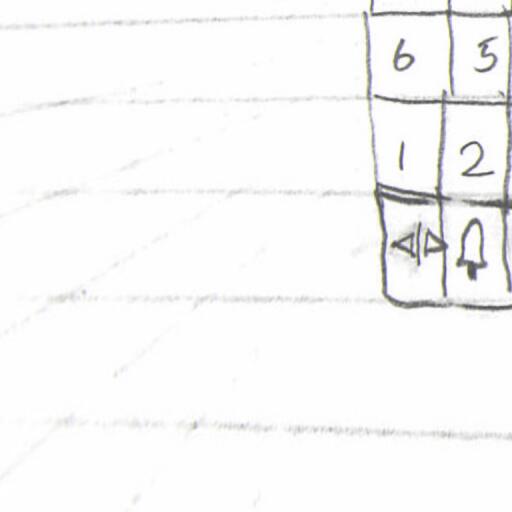 6 5
1 2